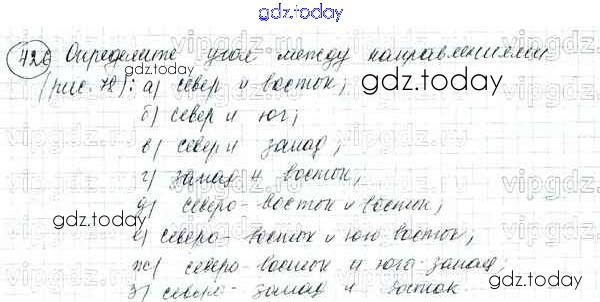 gdz.today
426 Определите угол между направлениями
gdz.today
(рис. 72): а) север и восток;
gdz.today
б) север и юг;
в) север и запад;
г) запад и восток;
vipgdz.ru
д) северо-восток и восток;
gdz.today
е) северо-восток и юго восток;
gdz.today
ж) северо-восток и юго-запад;
з) северо-запад и восток.
gdz.today